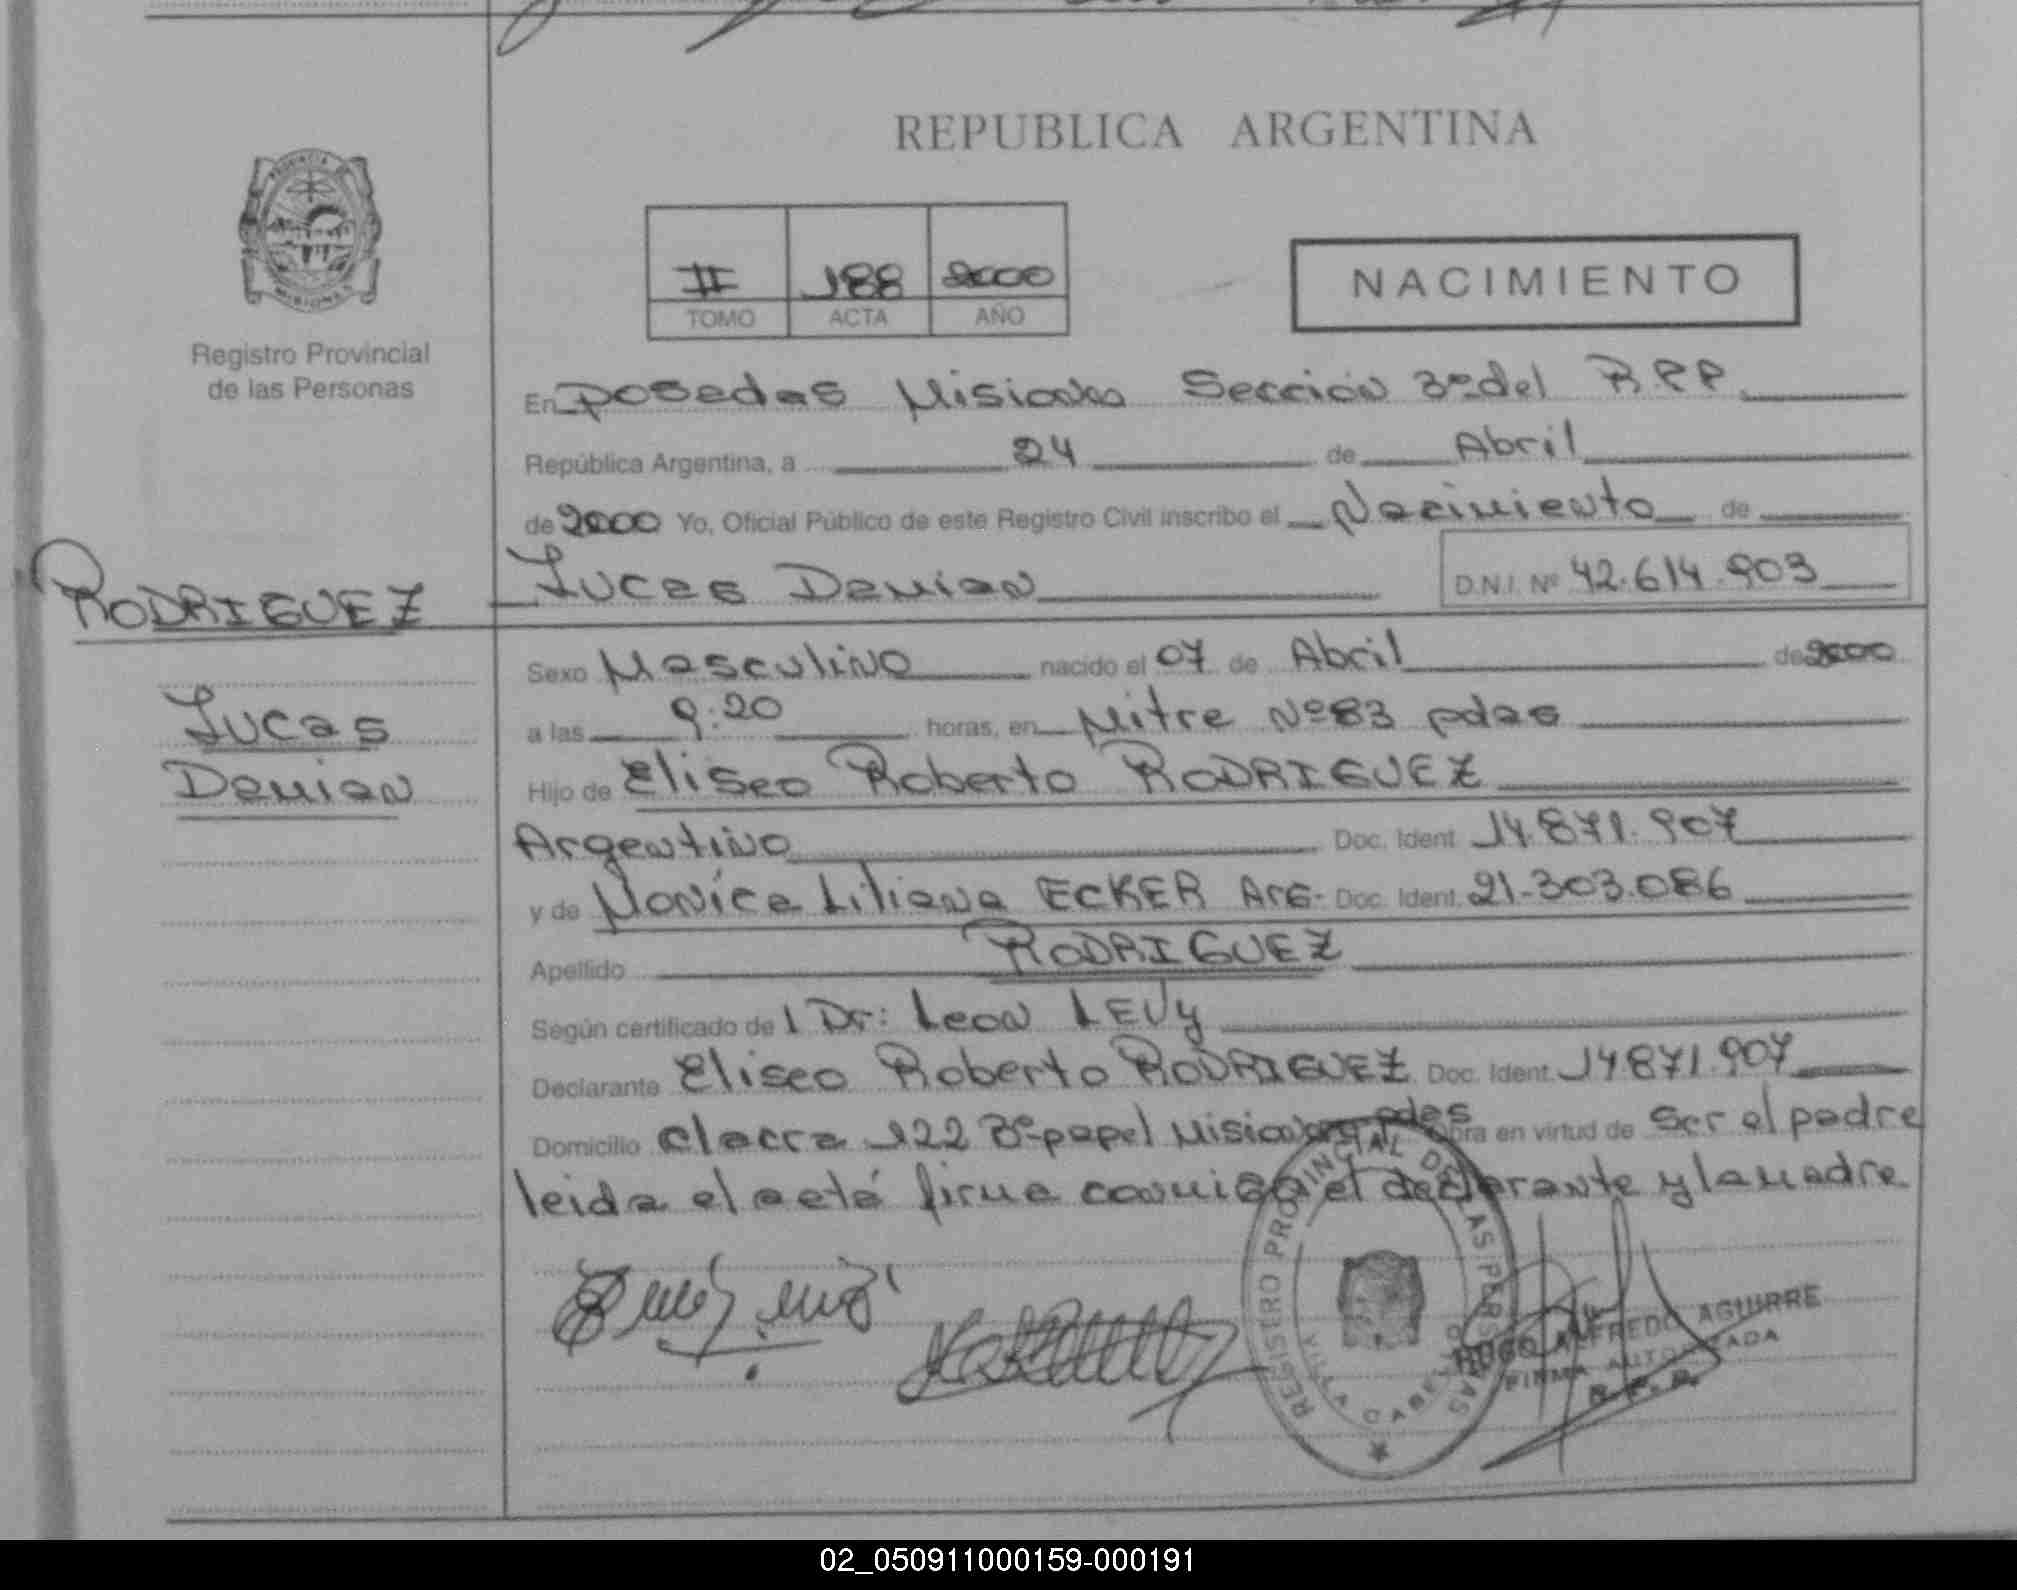 REPUBLICA ARGENTINA
PROVINCIA DE
MISIONES
Registro Provincial
de las Personas
II 188 2000
TOMO ACTA AÑO
NACIMIENTO
En Posadas Misiones Sección 3º del R.P.P.
República Argentina, a 24 de Abril
de 2000 Yo, Oficial Público de este Registro Civil inscribo el Nacimiento de
Lucas Damian D.N.I. Nº 42.614.903
RODRIGUEZ
Lucas
Damian
Sexo Masculino nacido el 07 de Abril de 2000
a las 9:20 horas, en Mitre Nº 83 pdas
Hijo de Eliseo Roberto RODRIGUEZ
Argentino Doc. Ident. 14.871.907
y de Monica Liliana ECKER Arg- Doc. Ident. 21.303.086
Apellido RODRIGUEZ
Según certificado de l Dr: Leon LEVY
Declarante Eliseo Roberto RODRIGUEZ Doc. Ident. 14.871.907
Domicilio chacra 122 Bº papel Misionero pdas Obra en virtud de ser el padre
leida el acta firma conmigo el declarante y la madre
REGISTRO PROVINCIAL DE LAS PERSONAS
VILLA CABELLO
HUGO ALFREDO AGUIRRE
FIRMA AUTORIZADA
R. P. P.
02_050911000159-000191